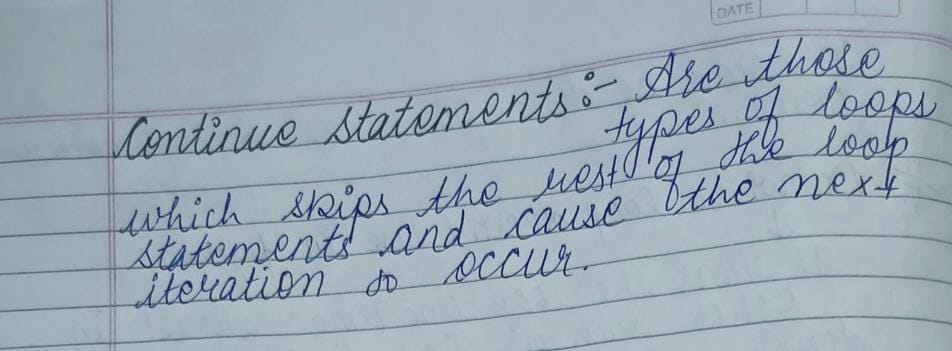 DATE
Continue Statements:- Are those
types of loops
which skips the rest of the loop
statements and cause the next
iteration to occur.